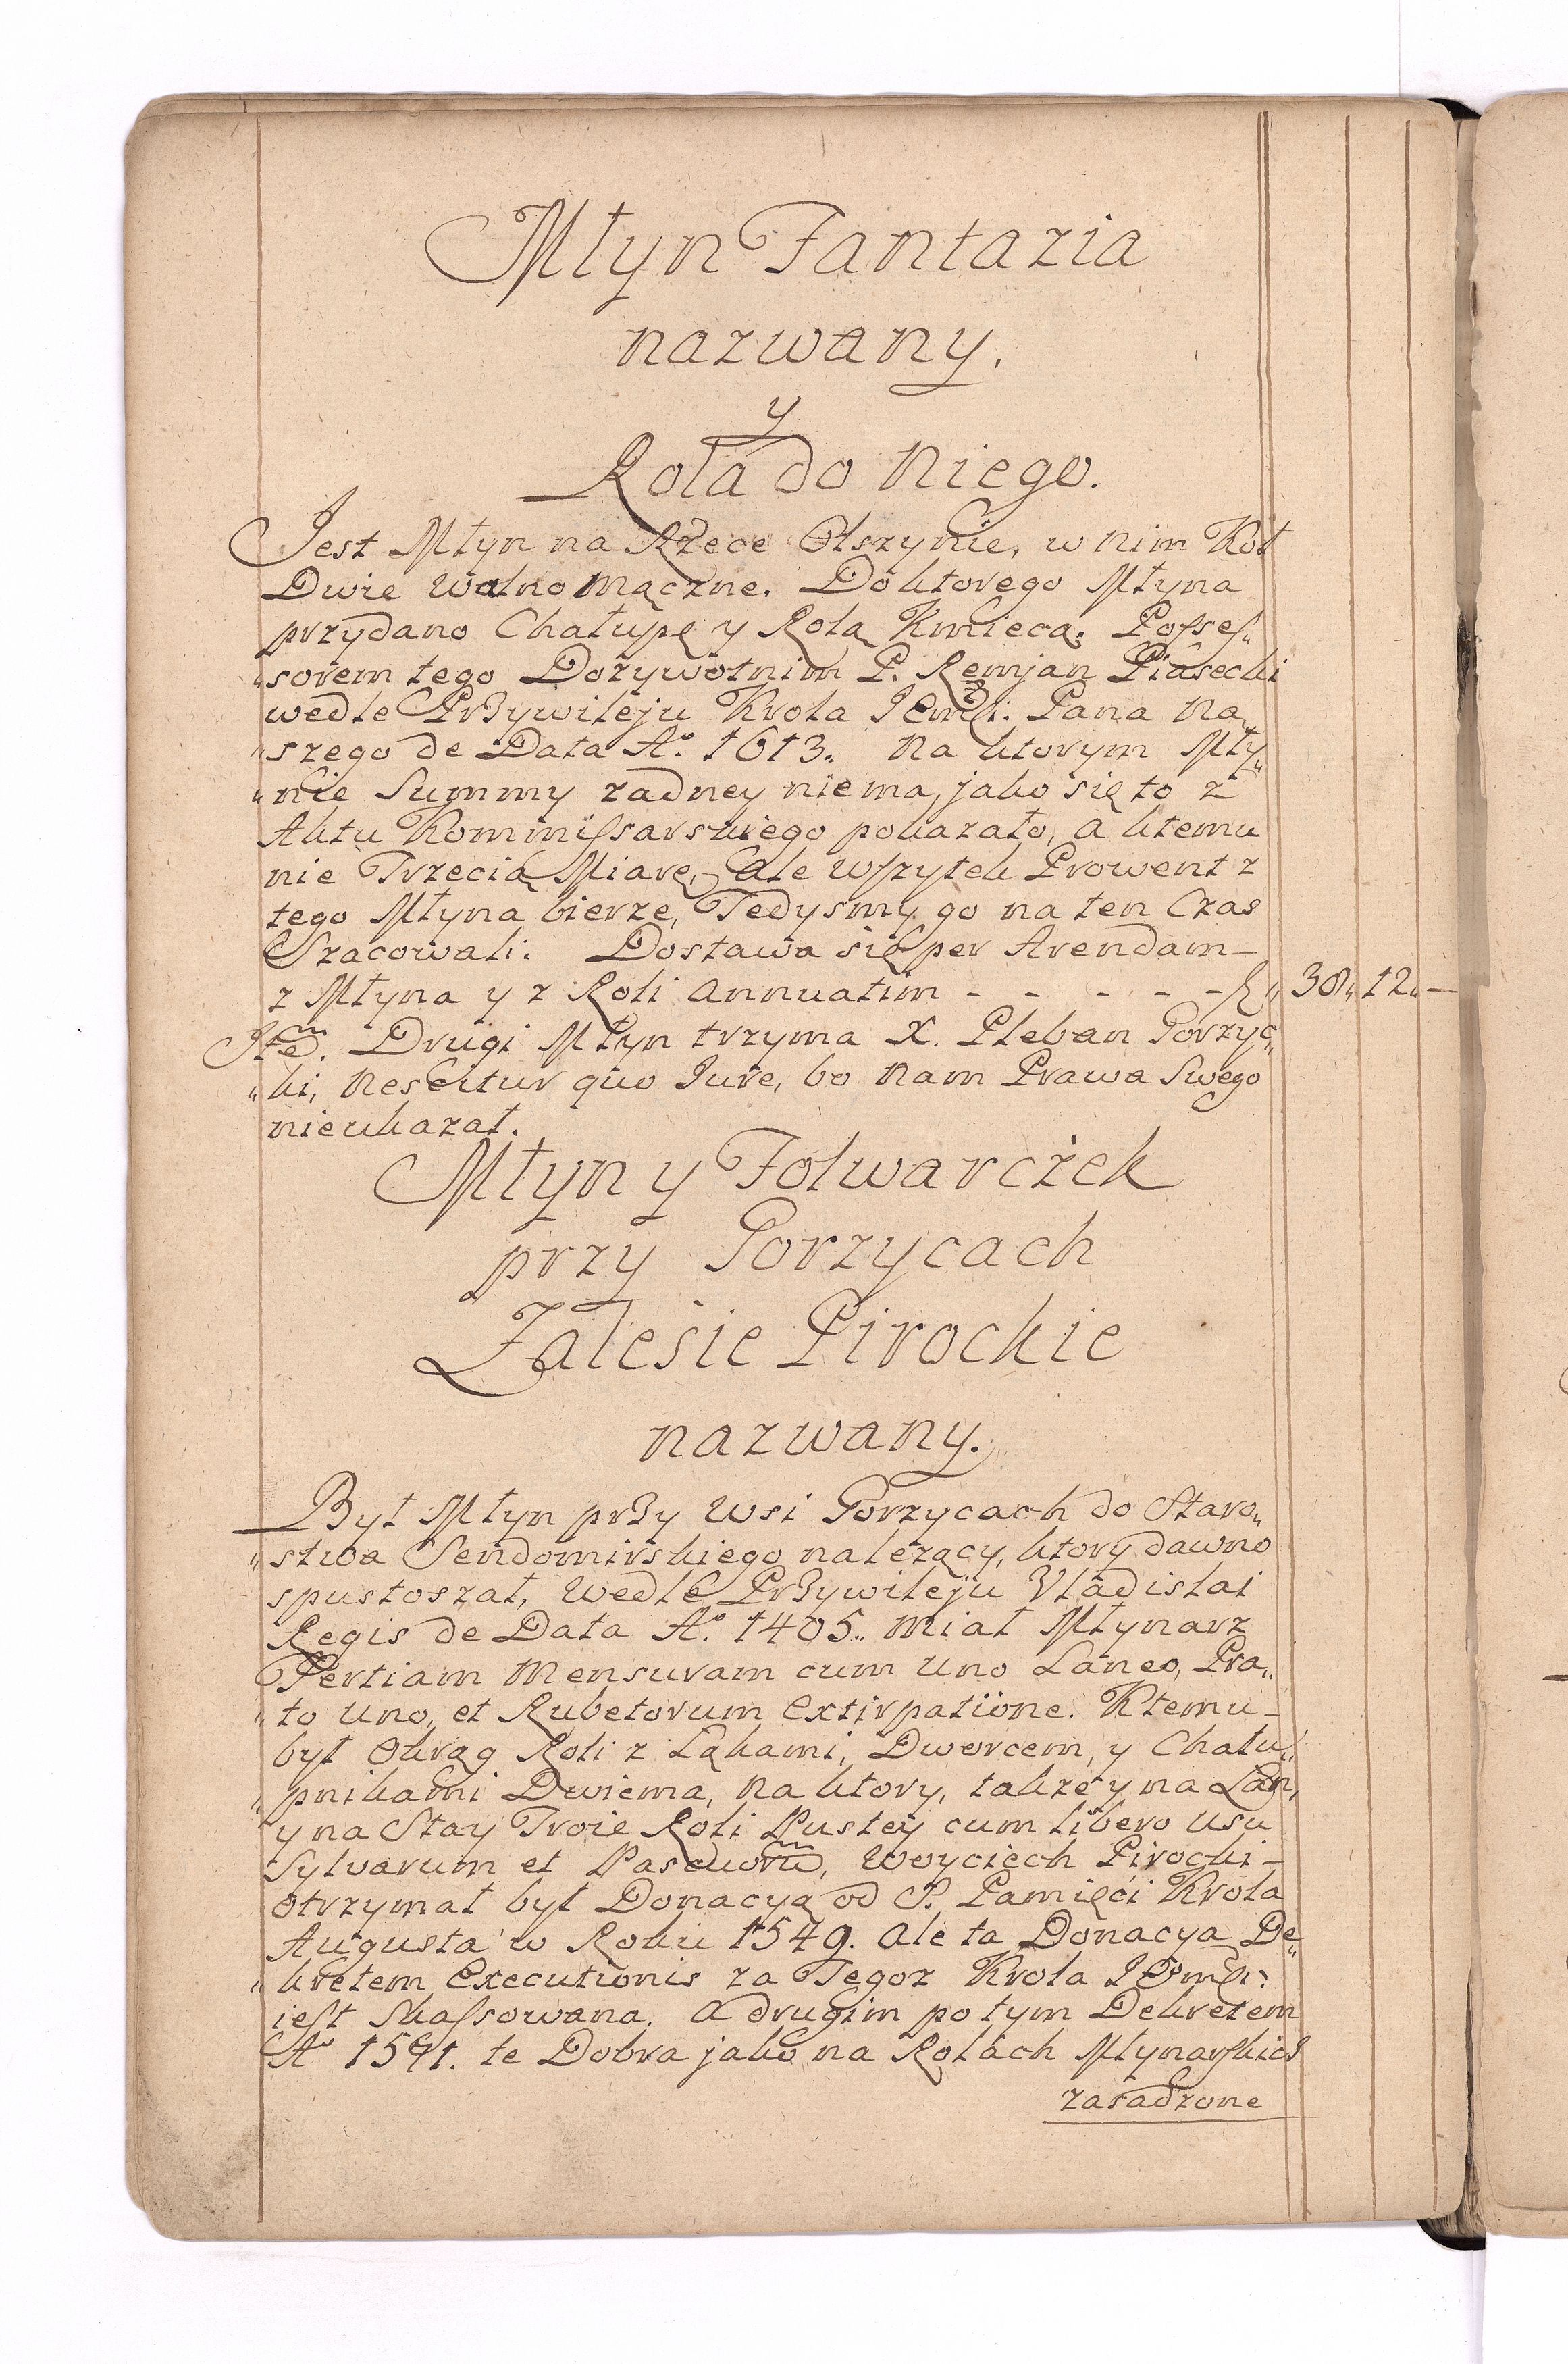 Młyn Fantazia
nazwany.
y
Rola do Niego.
Jest Młyn na Rzece Olszynie, w nim Kół
Dwie walno mączne. Do ktorego Młyna
przydano Chałupę y Rolą Kmiecą. Possess„
„sorem tego Dożywotnim P. Remjan Piasecki
wedle Przywileju Krola JEmŚi: Pana Na„
„szego de Data Aº. 1613. Na ktorym Mły„
„nie Summy żadney niema, jako się to z
Aktu Kommissarskiego pokazało, a ktemu
nie Trzecią Miarę, ale wszytek Prowent z
tego Młyna bierze, Tedysmy go na ten Czas
Szacowali: Dostawa się per Arendam
z Młyna y z Roli annuatim - - - - - - f„ 38„ 12„ —
Itẽ. Drugi Młyn trzyma X. Pleban Gorzyc„
„ki, Nescitur quo Jure, bo Nam Prawa Swego
nieukazał.
Młyn y Folwarczek
przy Gorzycach
Zalesie Pirockie
nazwany.
Był Młyn przy Wsi Gorzycach do Staro„
„stwa Sendomirskiego należący, ktory dawno
spustoszał, Wedle Przywileju Vladislai
Regis de Data Aº. 1405. miał Młynarz
Tertiam Mensuram cum Uno Laneo, Pra„
„to Uno, et Rubetorum extirpatione. Ktemu
był Okrąg Roli z Łąkami, Dworcem, y Chału„
„pnikami Dwiema, Na ktory, także y na Łan,
y na Stay Troie Roli Pustey cum libero Usu
Sylvarum et Pascuorũ, Woyciech Pirocki
otrzymał był Donacyą od S. Pamięci Krola
Augusta w Roku 1549. Ale ta Donacya De„
„kretem Executionis za Tegoż Krola JEmŚi:
iest Skassowana. A drugim po tym Dekretem
Aº 1591. te Dobra jako na Rolach Młynarskich
zasadzone